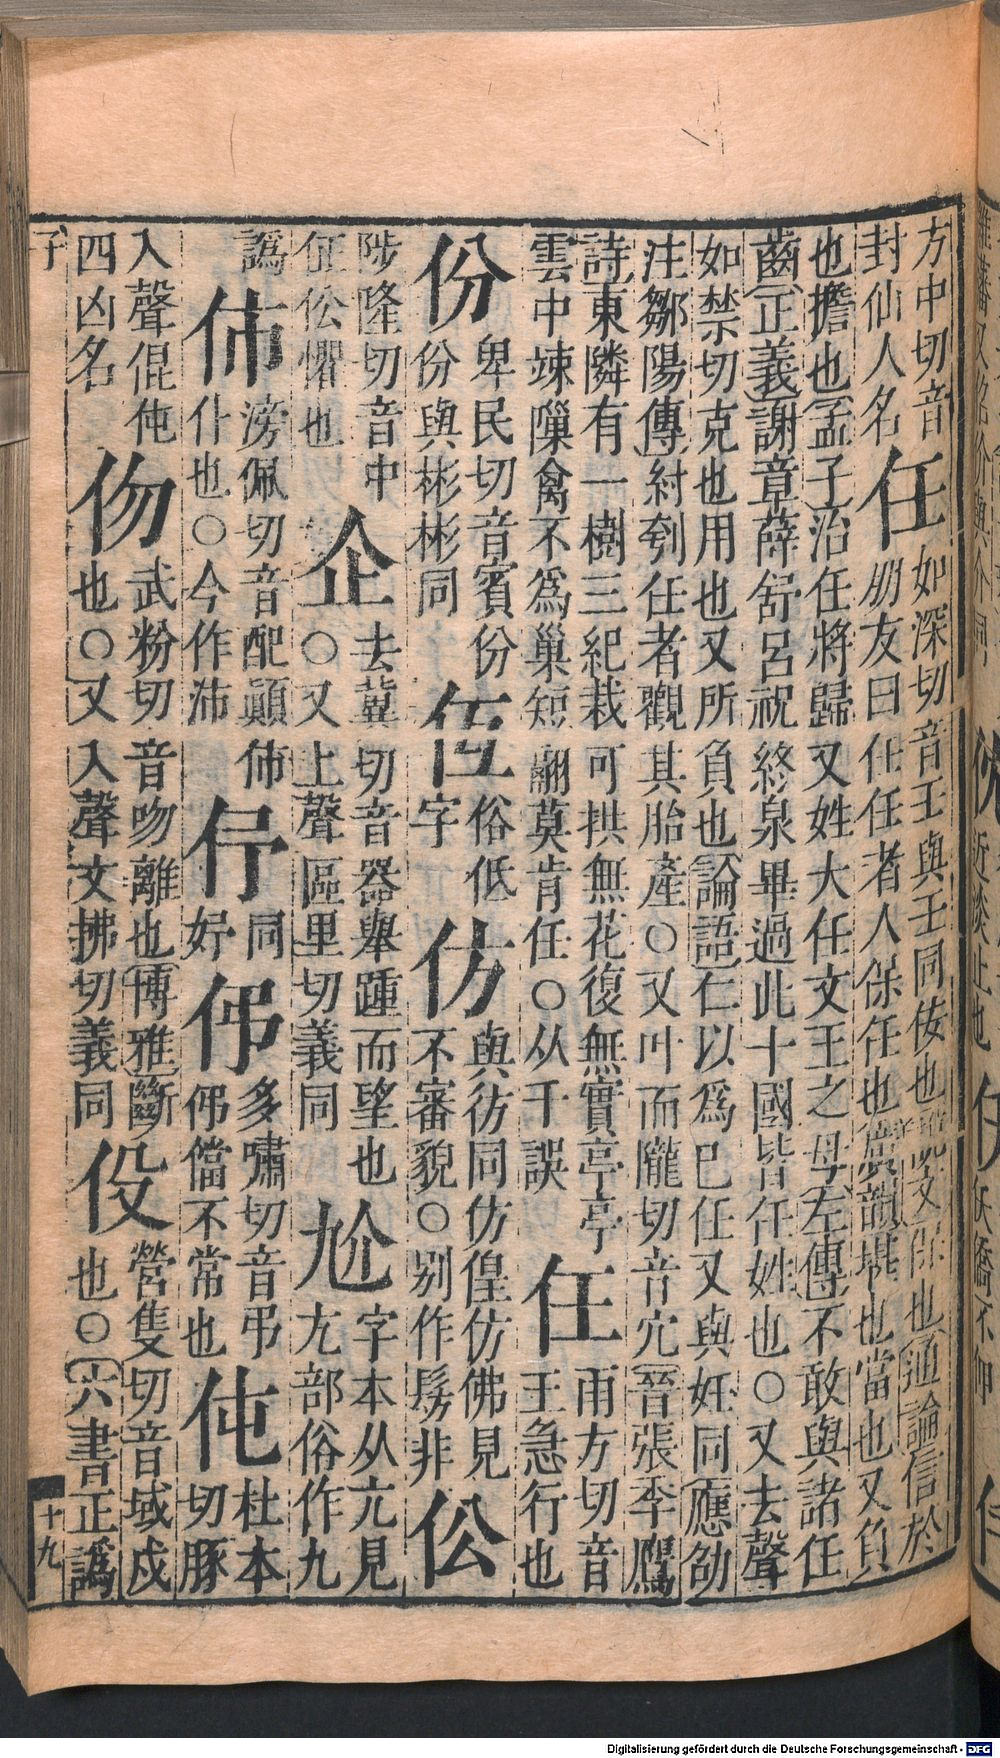 方中切音
封仙人名
任
如深切音壬與壬同佞也說文保也通論信於
朋友曰任任者人保任也廣韻堪也當也又負
也擔也孟子治任將歸又姓大任文王之母左傳不敢與諸任
齒正義謝章薛舒呂祝終泉畢過此十國皆任姓也○又去聲
如禁切克也用也又所負也論語仁以爲巳任又與妊同應劭
注鄒陽傳紂刳任者觀其胎產○又叶而隴切音宂晉張季鷹
詩東隣有一樹三紀栽可拱無花復無實亭亭
雲中竦禽不爲巢短翮莫肯任○从千誤
仼
甫方切音
王急行也
份
卑民切音賓份
份與彬彬同
仾
俗低
字
仿
與彷同仿偟仿佛見
不審貌○別作髣非
伀
陟隆切音中
伀懼也
企
去冀切音器舉踵而望也
○又上聲區里切義同
尬
字本从亢見
尢部俗作九
譌
伂
滂佩切音配顚伂
仆也○今作沛
伃
同
妤
伄
多嘯切音弔
伄儅不常也
伅
杜本
切豚
入聲倱伅
四凶名
伆
武粉切音吻離也博雅斷
也○又入聲文拂切義同
伇
營隻切音域戍
也○六書正譌
子
十九
Digitalisierung gefördert durch die Deutsche Forschungsgemeinschaft - DFG